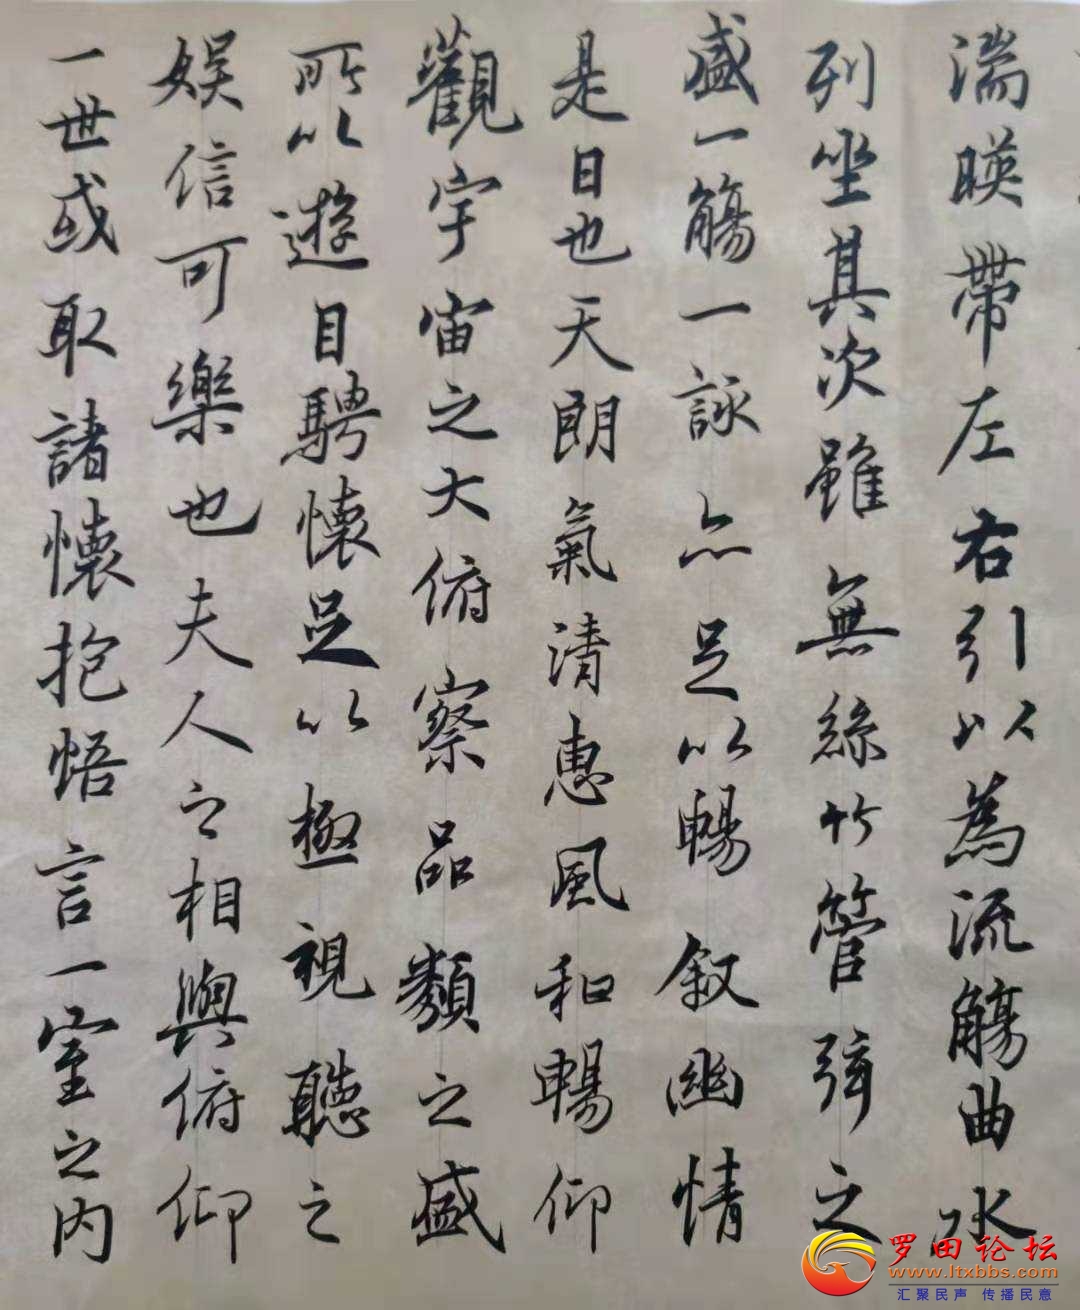 湍暎帶左右引以為流觴曲水
列坐其次雖無絲竹管弦之
盛一觴一詠亦足以暢叙幽情
是日也天朗氣清惠風和暢仰
觀宇宙之大俯察品類之盛
所以遊目騁懷足以極視聽之
娛信可樂也夫人之相與俯仰
一世或取諸懷抱悟言一室之内
罗田论坛
www.ltxbbs.com
汇聚民声 传播民意